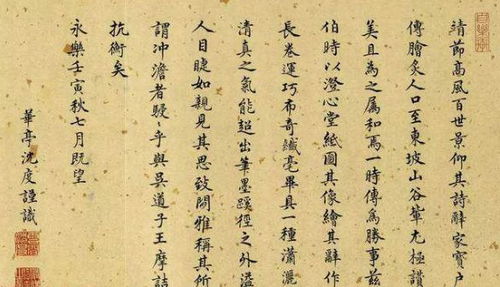 靖節高風百世景仰其詩辭家寶戶
傳膾炙人口至東坡山谷輩尤極讚
美且為之屬和焉一時傳為勝事茲
伯時以澄心堂紙圖其像繪其辭作
長卷運巧布奇纖毫畢具一種瀟灑
清真之氣能超出筆墨蹊徑之外溢
人目睫如親見其思致閒雅稱其所
謂沖澹者駸乎與吳道子王摩詰
抗衡矣
永樂壬寅秋七月既望
華亭沈度謹識